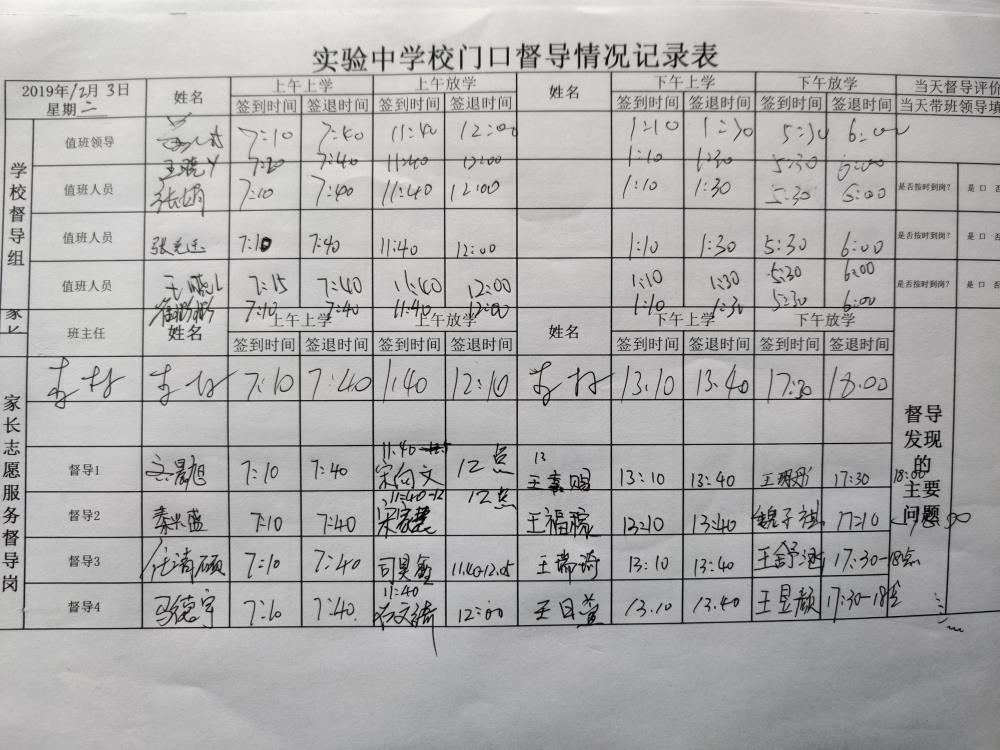 实验中学校门口督导情况记录表
2019年12月3日 星期二 姓名 上午上学 上午放学 姓名 下午上学 下午放学 当天督导评价
签到时间 签退时间 签到时间 签退时间 签到时间 签退时间 签到时间 签退时间 当天带班领导填
学校督导组
值班领导 7:10 7:40 11:40 12:00 1:10 1:30 5:30 6:00
7:20 7:40 11:40 12:00 1:10 1:30 5:30 6:00
值班人员 张娟 7:10 7:40 11:40 12:00 1:10 1:30 5:30 6:00 是否按时到岗? 是 口 否
值班人员 7:10 7:40 11:40 12:00 1:10 1:30 5:30 6:00 是否按时到岗? 是 口 否
值班人员 7:15 7:40 11:40 12:00 1:10 1:30 5:30 6:00 是否按时到岗? 是 口 否
崔彬彬 7:10 7:40 11:40 12:00 1:10 1:30 5:30 6:00
家长 班主任 姓名 上午上学 上午放学 姓名 下午上学 下午放学
签到时间 签退时间 签到时间 签退时间 签到时间 签退时间 签到时间 签退时间
7:10 7:40 11:40 12:10 13:10 13:40 17:30 18:00
家长志愿服务督导岗
督导发现的主要问题
11:40 13
督导1 7:10 7:40 宋向文 12点 王嘉赐 13:10 13:40 17:30 18:00
11:40-12 12点
督导2 秦兴蓝 7:10 7:40 王福稼 13:10 13:40 魏子祺 17:10
督导3 任清硕 7:10 7:40 司昊鑫 11:40-12:05 王瑞琦 13:10 13:40 王舒涵 17:30-18点
11:40
督导4 马德宇 7:10 7:40 12:00 王日萱 13:10 13:40 王昱颜 17:30-18点